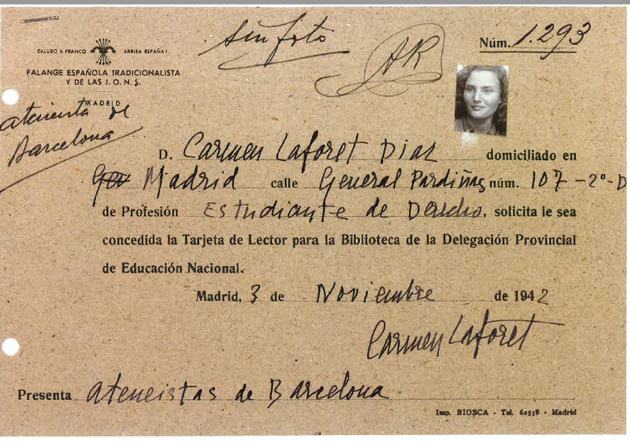 Sin foto
AR
Núm. 1.293
SALUDO A FRANCO ARRIBA ESPAÑA!
FALANGE ESPAÑOLA TRADICIONALISTA
Y DE LAS J. O. N. S.
MADRID
ateneista de
Barcelona
D. Carmen Laforet Diaz domiciliado en
Madrid calle General Pardiñas núm. 107-2º-D
de Profesión Estudiante de Derecho, solicita le sea
concedida la Tarjeta de Lector para la Biblioteca de la Delegación Provincial
de Educación Nacional.
Madrid, 3 de Noviembre de 1942
Carmen Laforet
Presenta ateneistas de Barcelona
Imp. BIOSCA - Tel. 62558 - Madrid